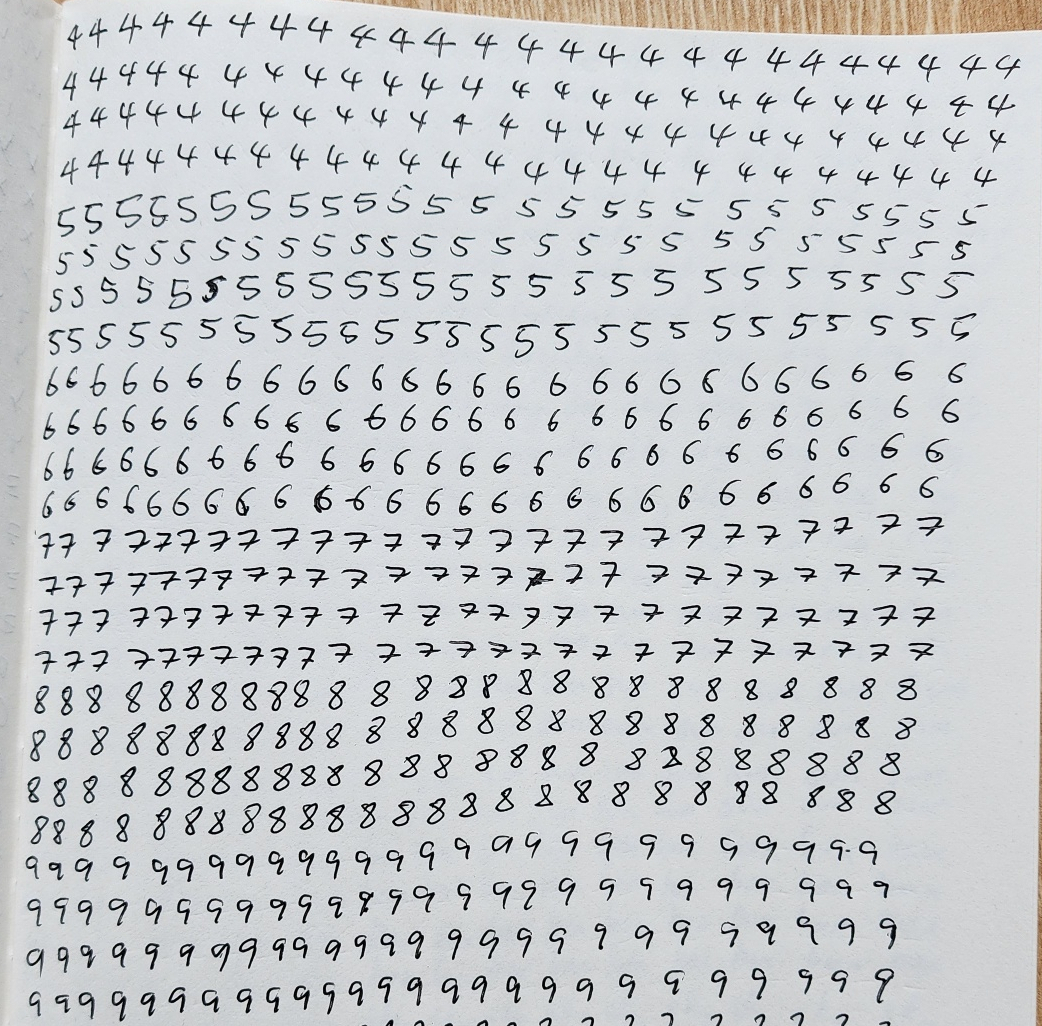 4 4 4 4 4 4 4 4 4 4 4 4 4 4 4 4 4 4 4 4 4 4 4 4 4
4 4 4 4 4 4 4 4 4 4 4 4 4 4 4 4 4 4 4 4 4 4 4 4 4
4 4 4 4 4 4 4 4 4 4 4 4 4 4 4 4 4 4 4 4 4 4 4 4 4
4 4 4 4 4 4 4 4 4 4 4 4 4 4 4 4 4 4 4 4 4 4 4 4 4
5 5 5 5 5 5 5 5 5 5 5 5 5 5 5 5 5 5 5 5 5 5 5 5 5
5 5 5 5 5 5 5 5 5 5 5 5 5 5 5 5 5 5 5 5 5 5 5 5 5
5 5 5 5 5 5 5 5 5 5 5 5 5 5 5 5 5 5 5 5 5 5 5 5 5
5 5 5 5 5 5 5 5 5 5 5 5 5 5 5 5 5 5 5 5 5 5 5 5 5
6 6 6 6 6 6 6 6 6 6 6 6 6 6 6 6 6 6 6 6 6 6 6 6 6
6 6 6 6 6 6 6 6 6 6 6 6 6 6 6 6 6 6 6 6 6 6 6 6 6
6 6 6 6 6 6 6 6 6 6 6 6 6 6 6 6 6 6 6 6 6 6 6 6 6
6 6 6 6 6 6 6 6 6 6 6 6 6 6 6 6 6 6 6 6 6 6 6 6 6
7 7 7 7 7 7 7 7 7 7 7 7 7 7 7 7 7 7 7 7 7 7 7 7 7
7 7 7 7 7 7 7 7 7 7 7 7 7 7 7 7 7 7 7 7 7 7 7 7 7
7 7 7 7 7 7 7 7 7 7 7 7 7 7 7 7 7 7 7 7 7 7 7 7 7
7 7 7 7 7 7 7 7 7 7 7 7 7 7 7 7 7 7 7 7 7 7 7 7 7
8 8 8 8 8 8 8 8 8 8 8 8 8 8 8 8 8 8 8 8 8 8 8 8 8
8 8 8 8 8 8 8 8 8 8 8 8 8 8 8 8 8 8 8 8 8 8 8 8 8
8 8 8 8 8 8 8 8 8 8 8 8 8 8 8 8 8 8 8 8 8 8 8 8 8
8 8 8 8 8 8 8 8 8 8 8 8 8 8 8 8 8 8 8 8 8 8 8 8 8
9 9 9 9 9 9 9 9 9 9 9 9 9 9 9 9 9 9 9 9 9 9 9 9 9
9 9 9 9 9 9 9 9 9 9 9 9 9 9 9 9 9 9 9 9 9 9 9 9 9
9 9 9 9 9 9 9 9 9 9 9 9 9 9 9 9 9 9 9 9 9 9 9 9 9
9 9 9 9 9 9 9 9 9 9 9 9 9 9 9 9 9 9 9 9 9 9 9 9 9